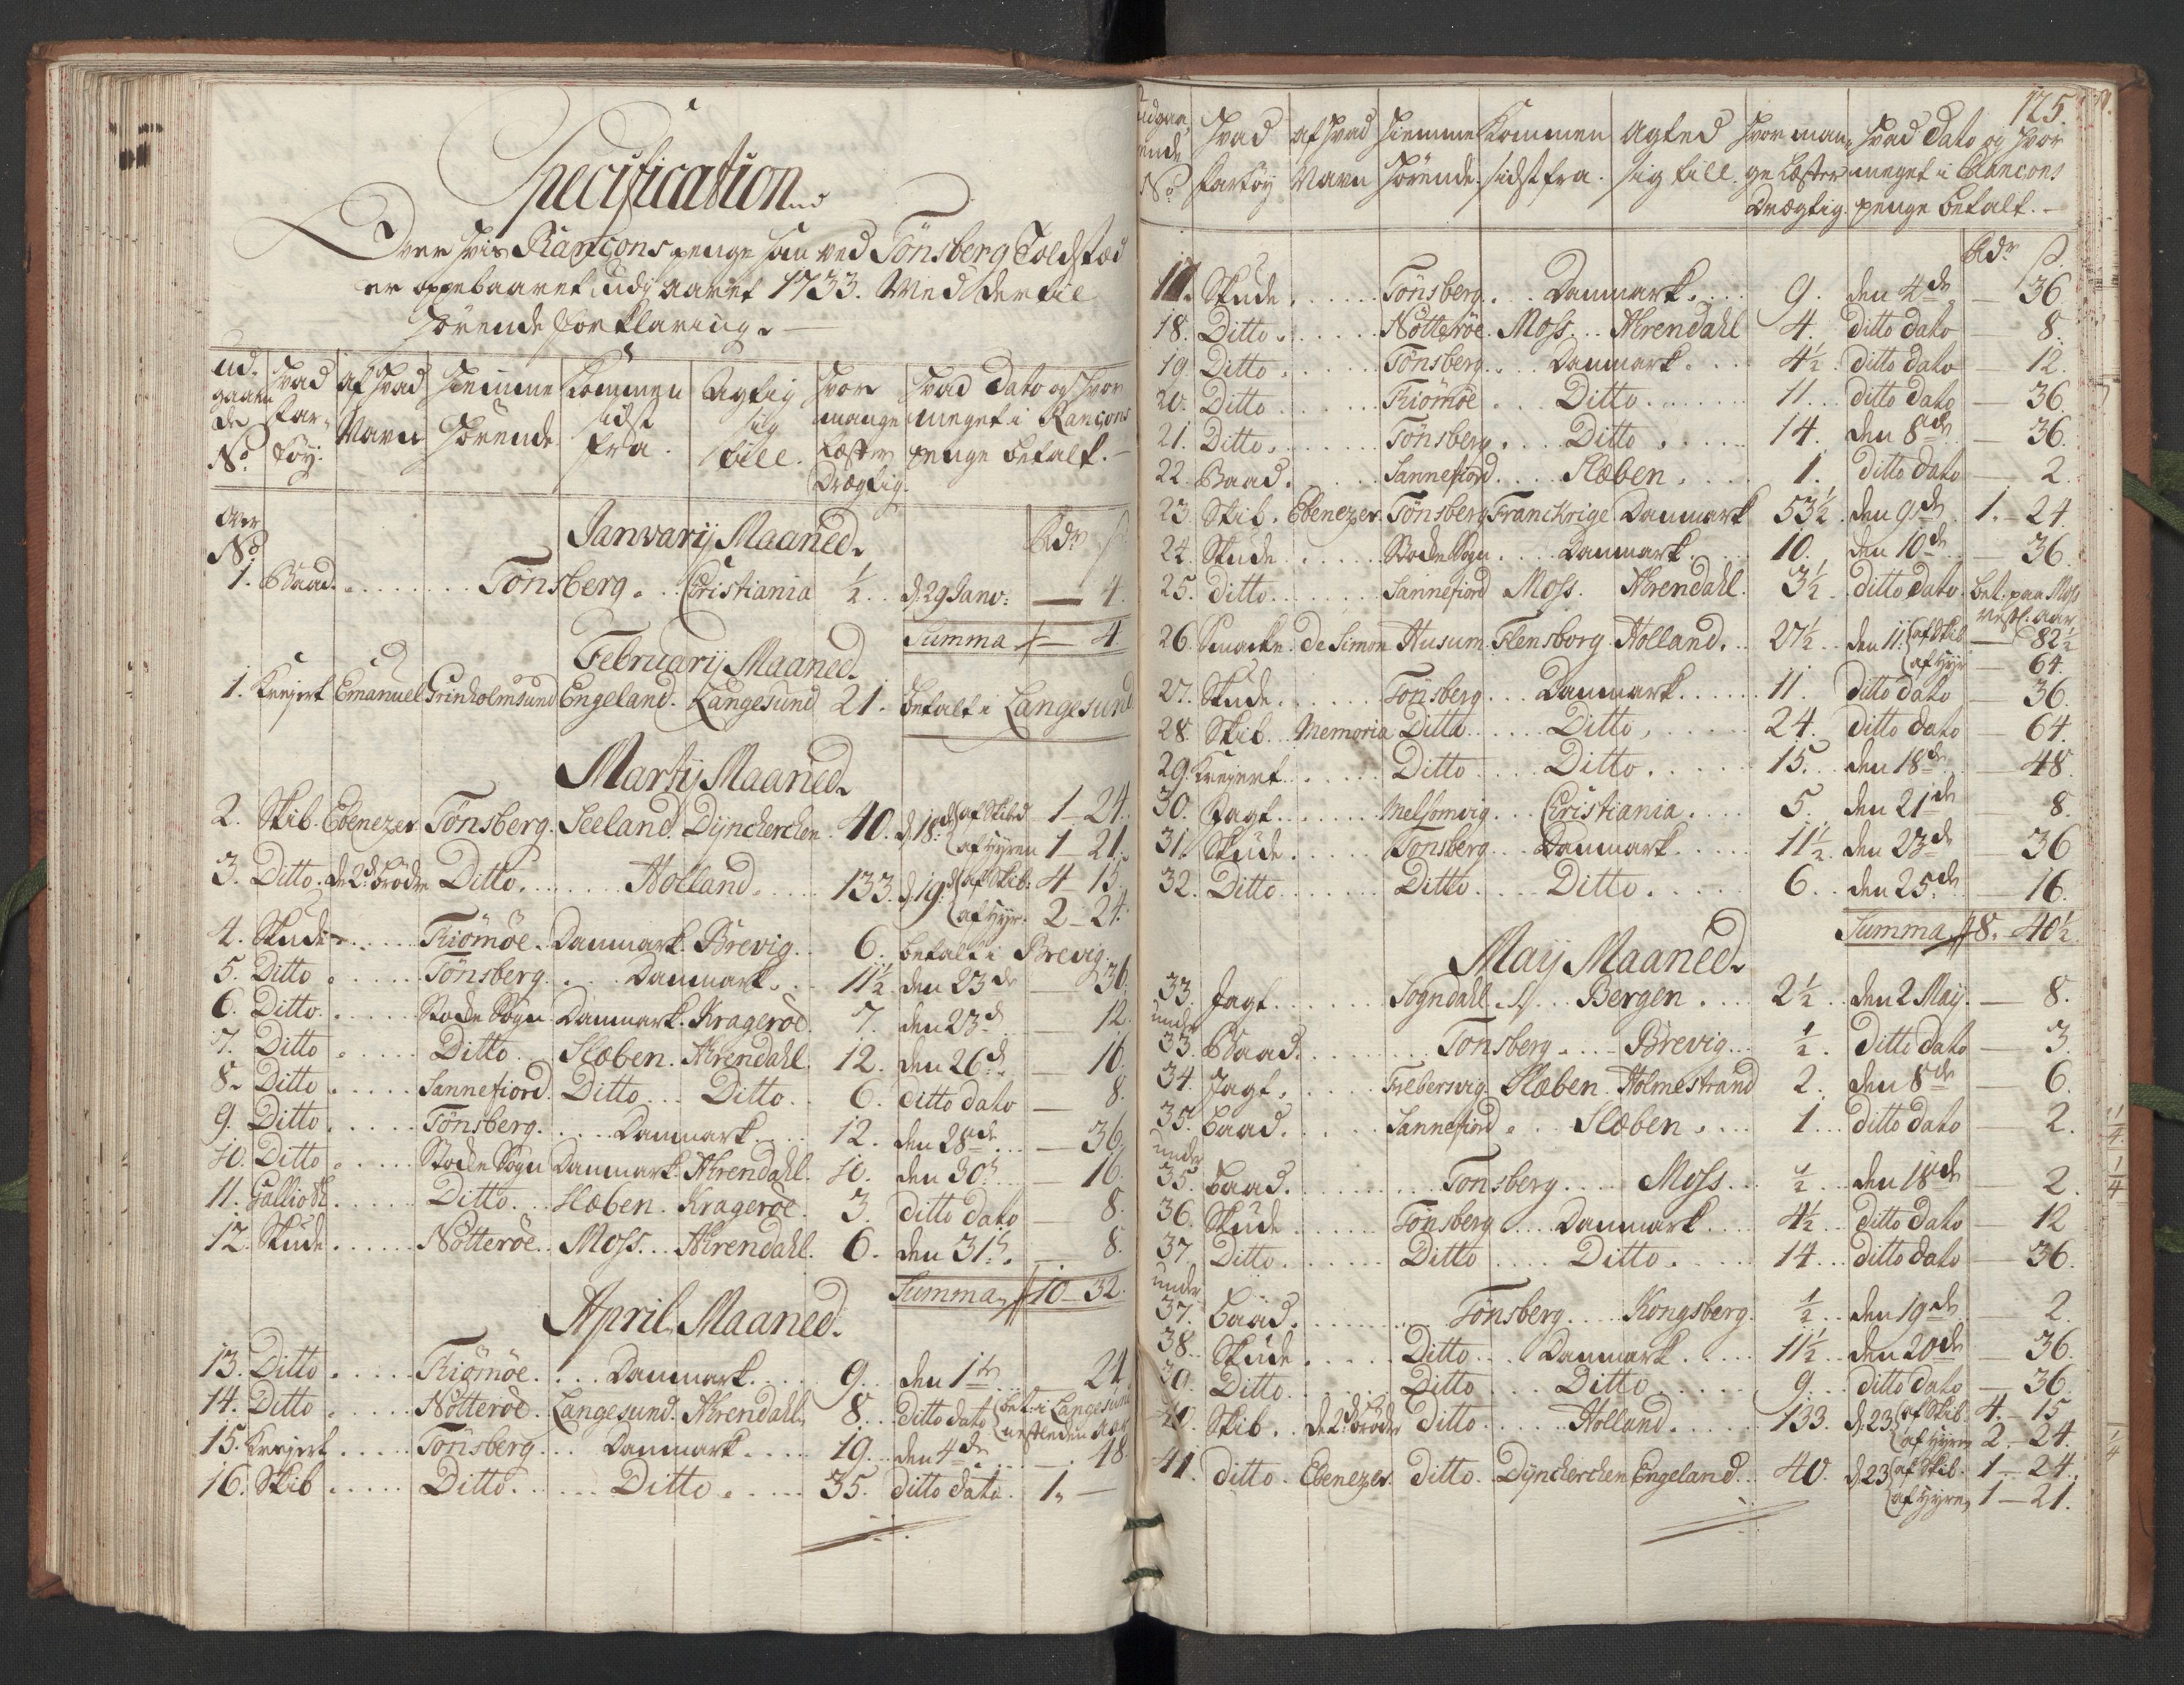 Specification
Over hvis Rançons penge som ved Tönsberg Toldsted
er oppebaaret udj aaret 1733. Med dertil
hörende forklaring.
Ud- gaaende No | Hvad Far- töÿ. | Af hvad Navn | Hiemme Hörende | Kommen sidst fra. | Agtig sig till. | Hvor mange Læster Drægtig. | Hvad Dato og hvor meget i Rançons penge betalt.
Januarij Maaned. Rdr ß
Over No
1. Baad. Tönsberg. Christiania ½ d. 29 Janv: — 4.
Summa — 4
Februarij Maaned.
1. Kreÿert Emanuel Grinholmsund Engeland. Langesund 21. betalt i Langesund
Martij Maaned.
2. Skib. Ebenezer Tönsberg. Seeland. Dÿncherchen 40. d. 18de af Skibd 1 - 24.
af Hÿren 1 - 21.
3. Ditto. de 2de Brödre Ditto. Holland. 133. d. 19de af Skib. 4 - 15
af Hÿr. 2 - 24.
4. Skude. Tiömöe. Danmark. Brevig. 6. betalt i Brevig.
5. Ditto. Tönsberg. Danmark. 11½ den 23de — 36.
6. Ditto. Stocke Sogn Danmark. Krageröe. 7. den 23d — 12.
7. Ditto. Ditto. Slæben. Ahrendahl. 12. den 26d. — 16.
8. Ditto. Sannefiord. Ditto. Ditto. 6. ditto dato — 8.
9. Ditto. Tönsberg. Danmark. 12. den 28de — 36.
10. Ditto. Stocke Sogn Danmark. Ahrendahl. 10. den 30d. — 16.
11. Gallioth. Ditto. Slæben. Krageröe. 3. ditto dato — 8.
12. Skude. Nötteröe. Moss. Ahrendahl. 6. den 31d. — 8.
Summa 10 - 32.
April Maaned.
13. Ditto. Tiömöe. Danmark. 9. den 1te 24.
14. Ditto. Nötteröe. Langesund. Ahrendahl. 8. ditto dato bet: i Langesund
nestleden aar
15. Kreÿert. Tönsberg. Danmark. 19. den 4de — 48.
16. Skib. Ditto. Ditto. 35. ditto dato. 1. —
175.
Udgaa- ende No | Hvad Fartöÿ | af hvad Navn | Hiemme Hörende. | Kommen sidst fra. | Agted sig till. | Hvor man- ge Læster Drægtig. | Hvad Dato og hvor meget i Rancons penge betalt.
Rdr ß
17. Skude. Tönsberg. Danmark. 9. den 4de — 36.
18. Ditto. Nötteröe. Moss. Ahrendahl 4. ditto dato — 8.
19. Ditto. Tönsberg. Danmark. 4½ ditto dato — 12.
20. Ditto. Tiömöe. Ditto. 11. ditto dato — 36.
21. Ditto. Tönsberg. Ditto. 14. den 8de — 36.
22. Baad. Sannefiord. Slæben. 1. ditto dato — 2.
23. Skib. Ebenezer. Tönsberg Franckrige Danmark 53½ den 9de 1. - 24.
24. Skude. Stocke Sogn. Danmark. 10. den 10de — 36.
25. ditto. Sannefiord Moss. Ahrendahl. 3½ ditto dato. bet. paa Moss
nestl. aar
26. Smacke. De Simon Husum. Flensborg. Holland. 27½ den 11. af Skib — 82½
af Hÿr — 64.
27. Skude. Tönsberg. Danmark. 11. ditto dato — 36.
28. Skib. Memoria Ditto. Ditto. 24. ditto dato — 64.
29. Kreÿert. Ditto. Ditto. 15. den 18de — 48.
30. Jagt. Melsomvig. Christiania. 5. den 21de 8.
31. Skude. Tönsberg. Danmark. 11½ den 23de 36
32. Ditto. Ditto. Ditto. 6. den 25de — 16.
Summa 8. - 40½
Maij Maaned.
33. Jagt. Sogndahl. Bergen. 2½ den 2 Maÿ. — 8.
under
33. Baad. Tönsberg. Brevig. ½. Ditto dato — 3.
34. Jagt. Frebersvig. Slæben. Holmestrand 2. den 8de — 6.
35. Baad. Sannefiord. Slæben. 1. ditto dato — 2.
under
35. Baad. Tönsberg. Moss. ½ den 18de — 2.
36. Skude. Tönsberg. Danmark. 4½ ditto dato — 12
37. Ditto. Ditto. Ditto. 14. ditto dato — 36.
under
37. Baad. Tönsberg. Kongsberg. ½ den 19de 2.
38. Skude. Ditto. Danmark. 11½ den 20de — 36.
39. Ditto. Ditto. Ditto. 9. ditto dato — 36.
40. Skib. De 2de Brödre ditto. Holland. 133. d. 23 af Skib. 4. - 15
af Hÿren 2 - 24.
41. ditto. Ebenezer. ditto. Dÿncherchen Engeland. 40. d. 23 af Skib. 1 - 24.
af Hÿren 1 - 21.